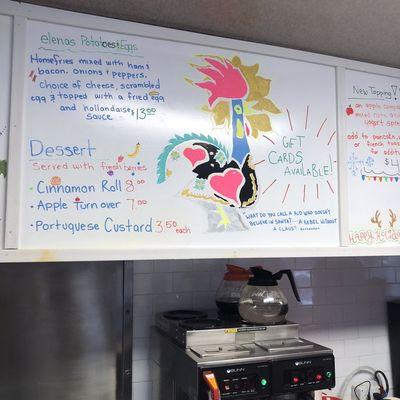 elenas Potatoes+Eggs
Homefries mixed with ham+
bacon. onions + peppers.
Choice of cheese, scrambled
egg + topped with a fried egg
and hollandaise
sauce $13.00
Dessert
Served with fresh berries
· Cinnamon Roll 8.00
· Apple Turn over 7.00
· Portuguese Custard 3.50 each
GET
CARDS
AVAILABLE!
WHAT DO YOU CALL A KID WHO DOESN'T
BELIEVE IN SANTA? A REBEL WITHOUT
A CLAUS!
New Topping!
an apple
add to pancakes,
or french toast
for
Happy Holid
BUNN
BUNN